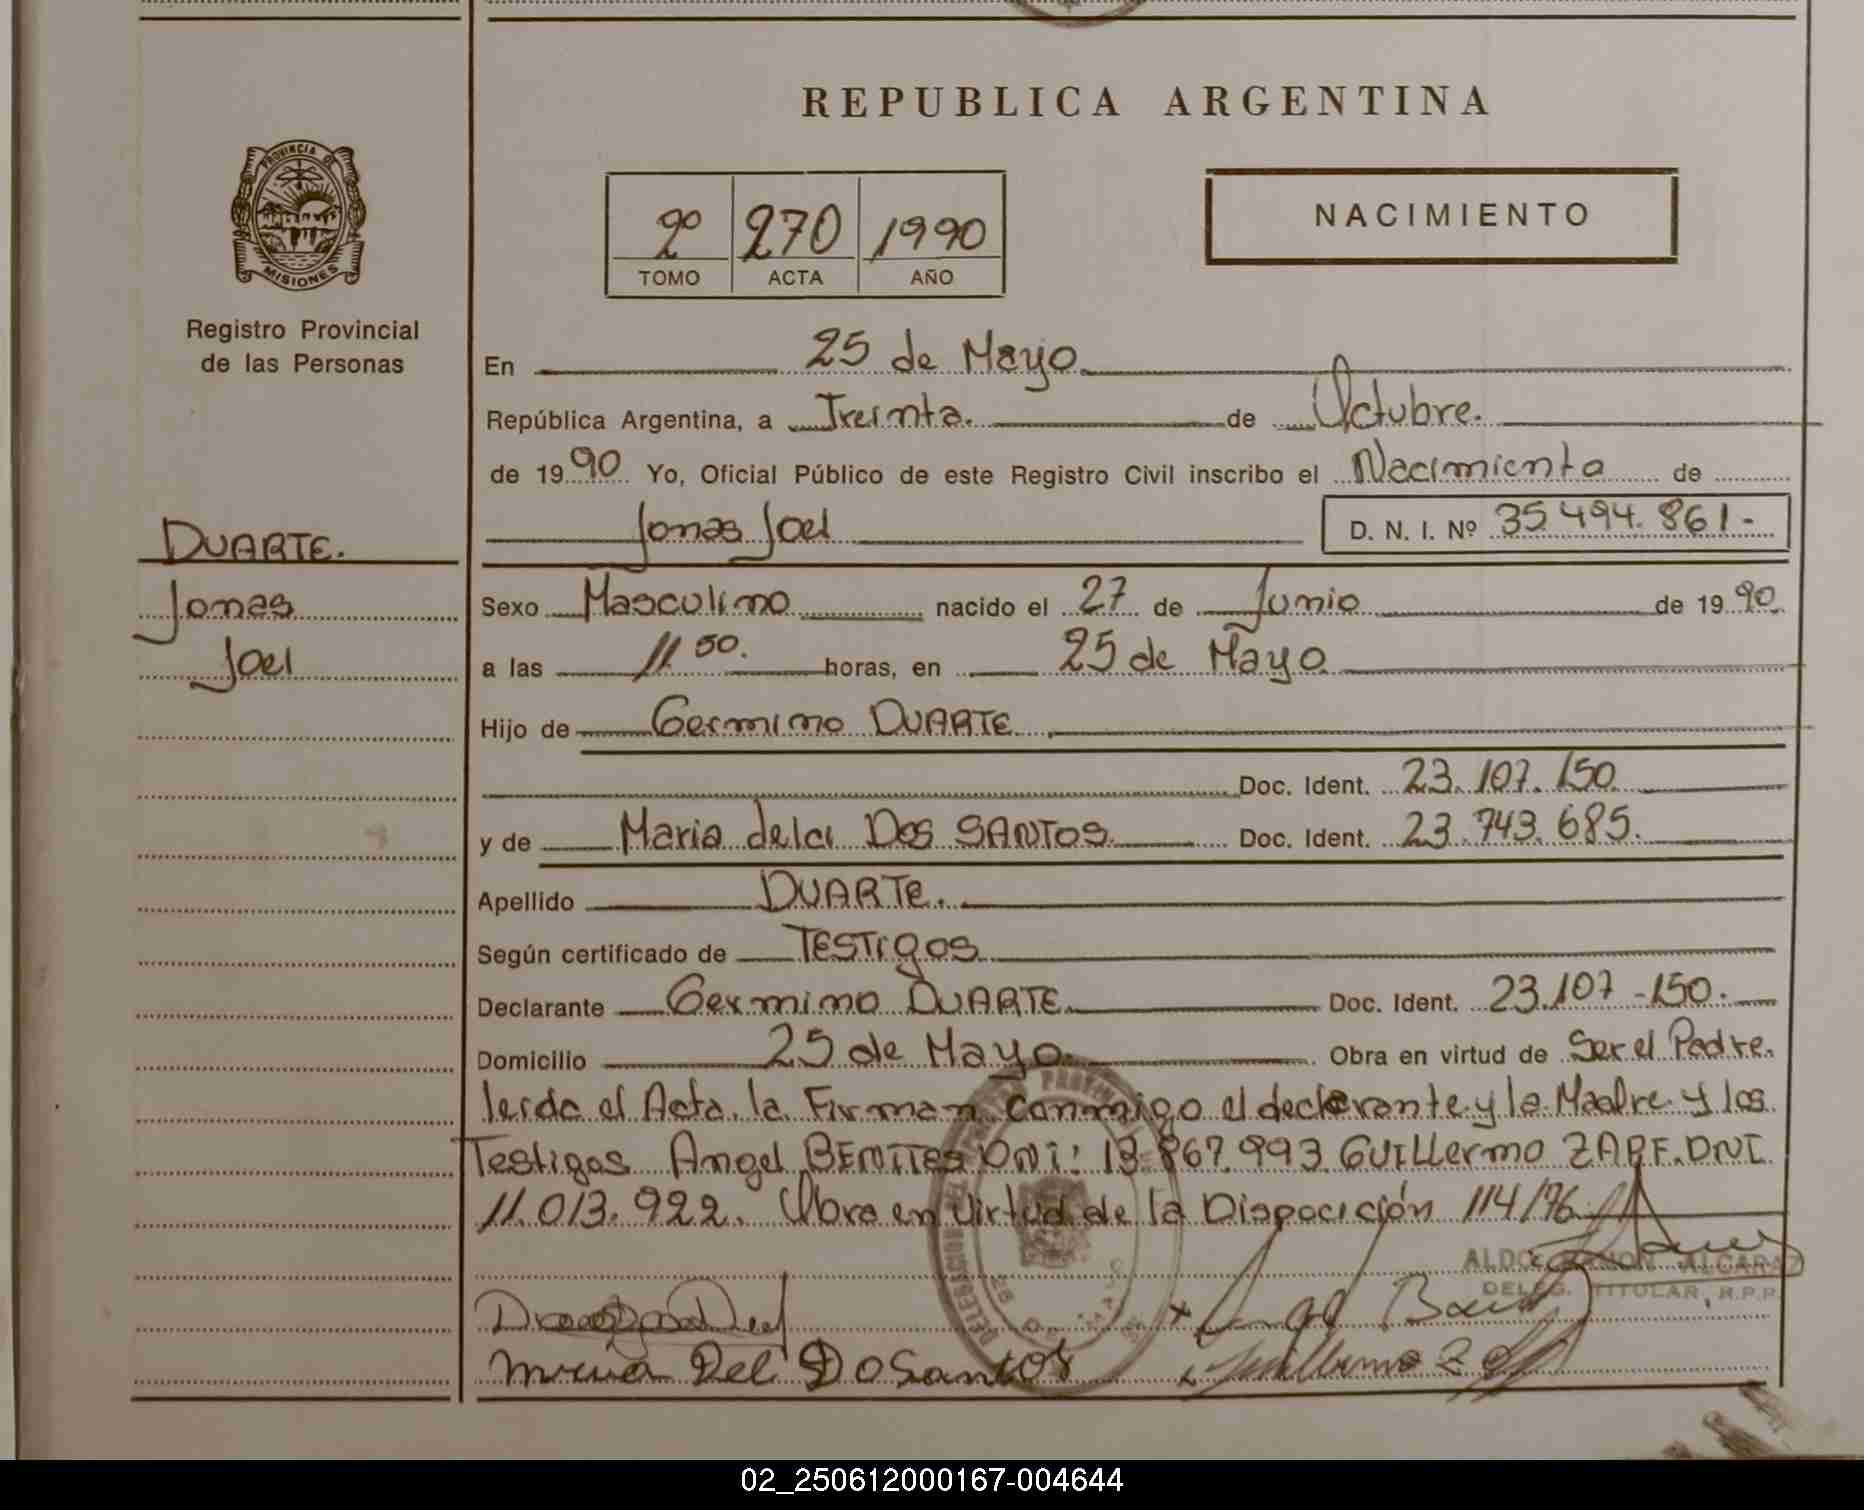 REPUBLICA ARGENTINA
PROVINCIA DE
MISIONES
Registro Provincial
de las Personas
2º 270 1990
TOMO ACTA AÑO
NACIMIENTO
En 25 de Mayo
República Argentina, a Treinta. de Octubre.
de 1990 Yo, Oficial Público de este Registro Civil inscribo el Nacimiento de
Jonas Joel D. N. I. Nº 35.494.861-
DUARTE.
Jonas
Joel
Sexo Masculino nacido el 27 de Junio de 1990
a las 11.50. horas, en 25 de Mayo
Hijo de Germino DUARTE
Doc. Ident. 23.107.150
y de Maria delci Dos SANTOS Doc. Ident. 23.743.685.
Apellido DUARTE.
Según certificado de TESTIGOS
Declarante Germino DUARTE Doc. Ident. 23.107-150.
Domicilio 25 de Mayo. Obra en virtud de Ser el Padre.
leida el Acta. la Firman conmigo el declarante y la Madre y los
Testigos Angel BENITES DNI: 13.867.993 GUILLermo ZAPF. DNI
11.013.922. Obra en virtud de la Disposición 114/76
ALDO RAMON ALCARAZ
DELEG. TITULAR, R.P.P.
Maria Del DoSantos
Guillermo
02_250612000167-004644